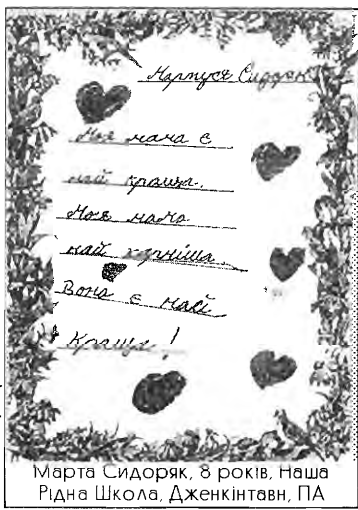 Мартуся Сидоряк
Моя мама є
най краща.
Моя мама
най гарніша.
Вона є най
краща!
Марта Сидоряк, 8 років, Наша
Рідна Школа, Дженкінтавн, ПА